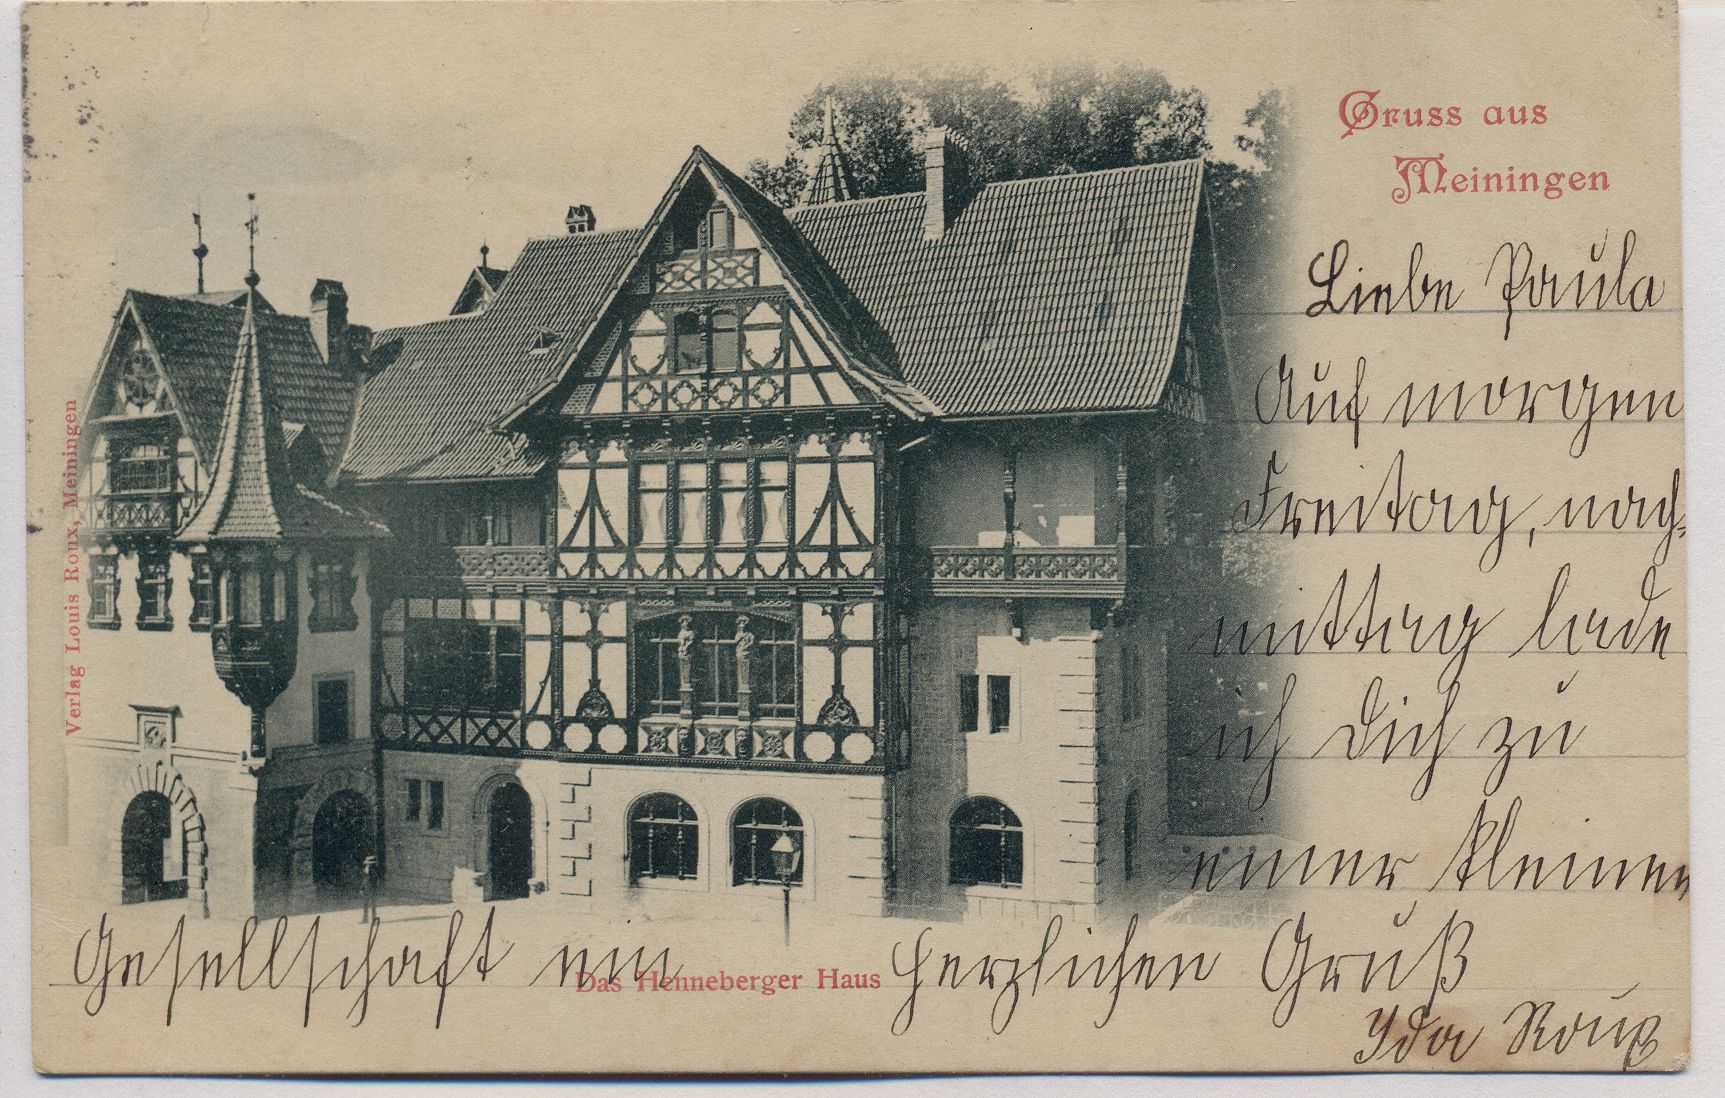 Gruss aus
Meiningen
Liebe Paula
Auf morgen
Freitag, nach-
mittag lade
ich Dich zu
einer kleinen
Gesellschaft ein
Herzlichen Gruß
Ida Roux
Das Henneberger Haus
Verlag Louis Roux, Meiningen